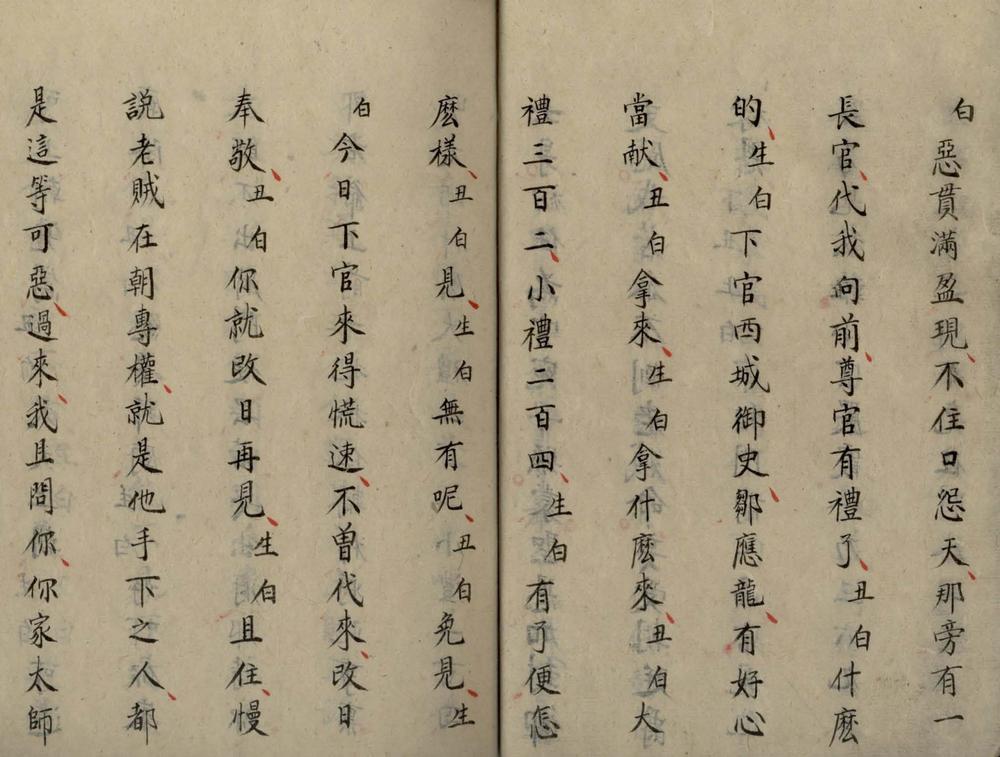 白惡貫滿盈現、不住口怨天、那旁有一
長官、代我向前、尊官有禮了、丑白什麽
的、生白下官西城御史、鄒應龍、有好心
當献、丑白拿來、生白拿什麽來、丑白大
禮三百二、小禮二百四、生白有了便怎
麽樣、丑白見、生白無有呢、丑白免見、生
白今日下官來得慌速、不曽代來、改日
奉敬、丑白你就改日再見、生白且住、慢
説老賊在朝專權、就是他手下之人、都
是這等可惡、過來、我且問你、你家太師